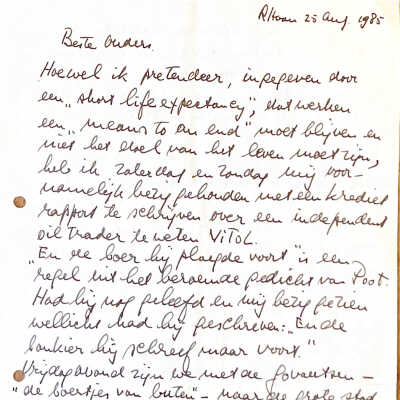 25 Aug 1985
Beste Ouders.
Hoewel ik pretendeer, ingegeven door
een „short life expectancy", dat werken
een „means to an end" moet blijven en
niet het doel van het leven moet zijn,
heb ik zaterdag en zondag mij voor-
namelijk bezig gehouden met een krediet
rapport te schrijven over een independent
oil trader te weten VITOL.
„En de boer hij ploegde voort" is een
regel uit het beroemde gedicht van
Had hij nog geleefd en mij bezig gezien
wellicht had hij geschreven: „En de
bankier hij schreef maar voort."
Vrijdagavond zijn we met de –
„de boertjes van buten" – naar de grote stad